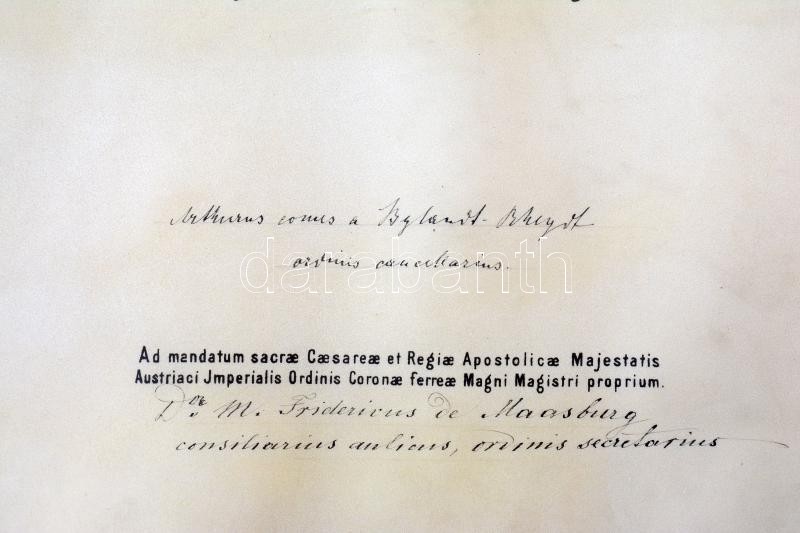 Arthurus comes a Bylandt-Rheydt
ordinis cancellarius.
darabanth
Ad mandatum sacræ Cæsareæ et Regiæ Apostolicæ Majestatis
Austriaci Jmperialis Ordinis Coronæ ferreæ Magni Magistri proprium.
Dor. M. Fridericus de Maasburg
consiliarius aulicus, ordinis secretarius